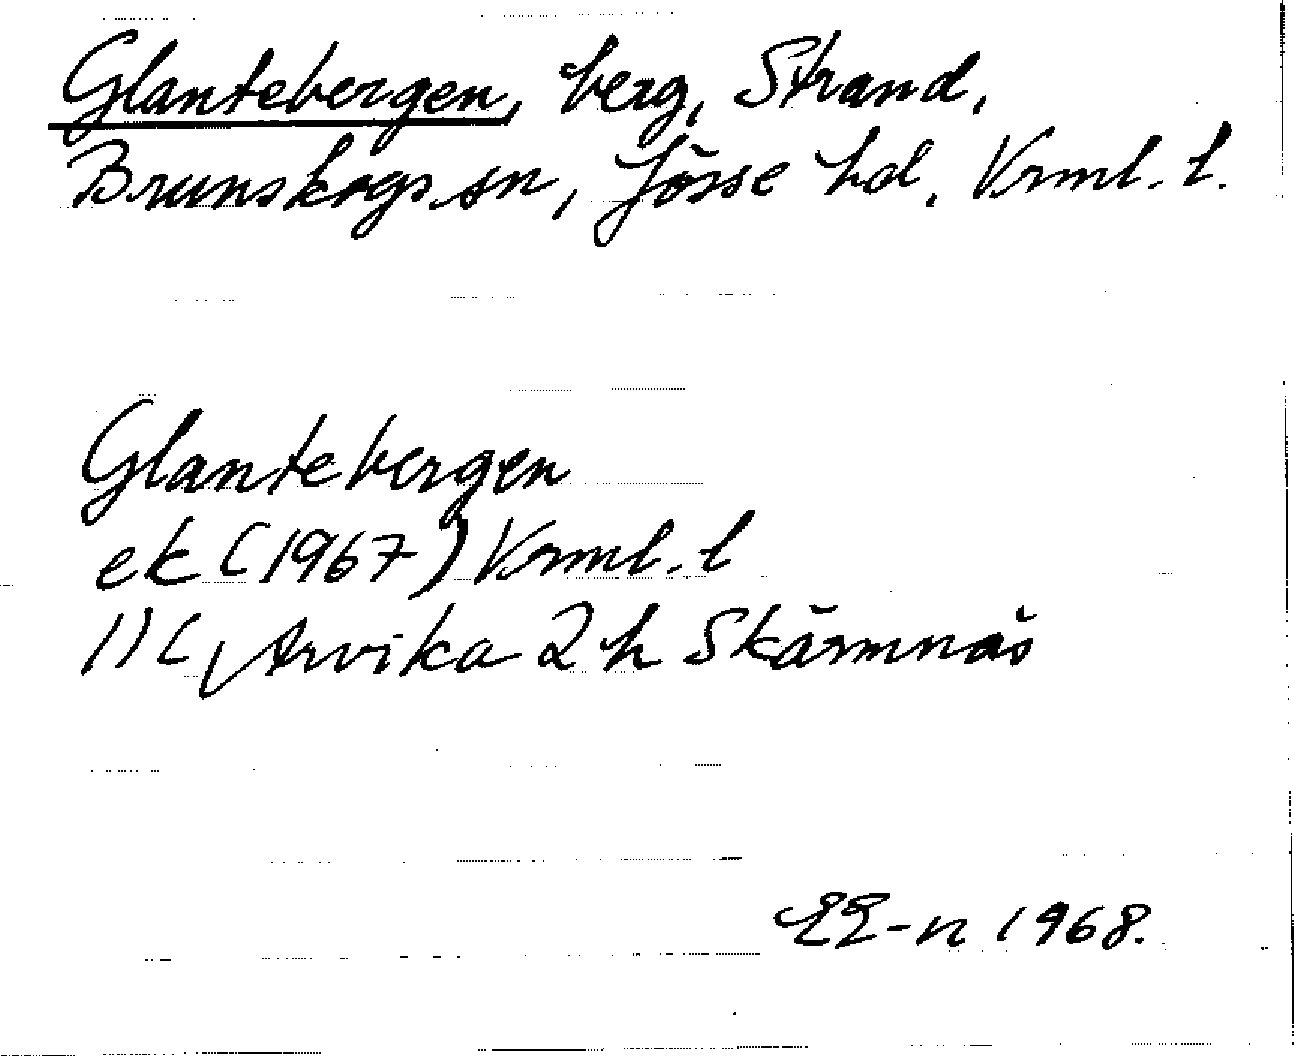 Glantebergen, berg, Strand,
Brunskogs sn, Jösse hd, Vrml. l.
Glantebergen
ek (1967) Vrml. l
11C, Arvika 2 h Skärmnäs
EE-n 1968.